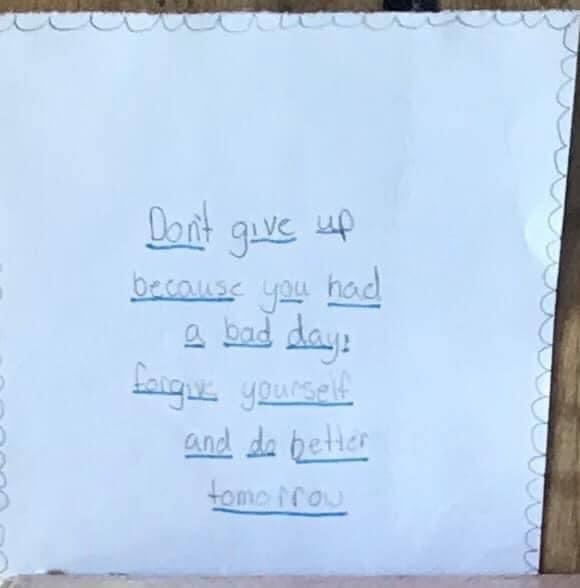 Don't give up
because you had
a bad day:
forgive yourself
and do better
tomorrow